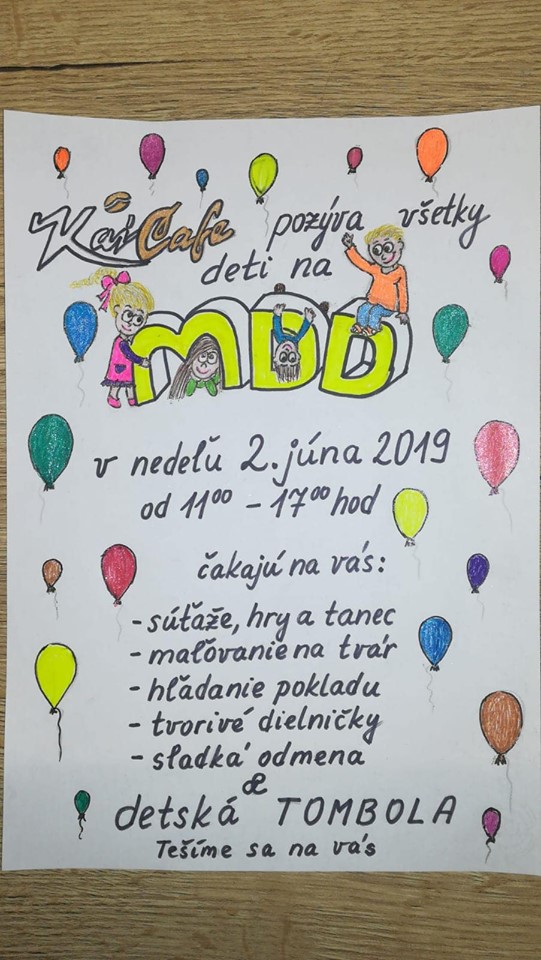 KaiCafe pozýva všetky
deti na
MDD
v nedeľu 2. júna 2019
od 11⁰⁰ - 17⁰⁰ hod
čakajú na vás:
- súťaže, hry a tanec
- maľovanie na tvár
- hľadanie pokladu
- tvorivé dielničky
- sladká odmena
&
detská TOMBOLA
Tešíme sa na vás